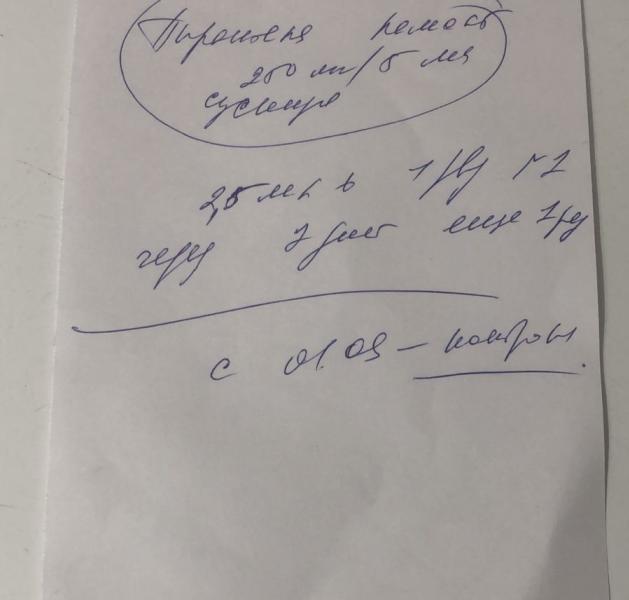 Пирантела памоат
250 мг/5 мл
суспензия
2,5 мл в 1/д №1
через 7 дней еще 1 раз
с 01.09 – контроль.